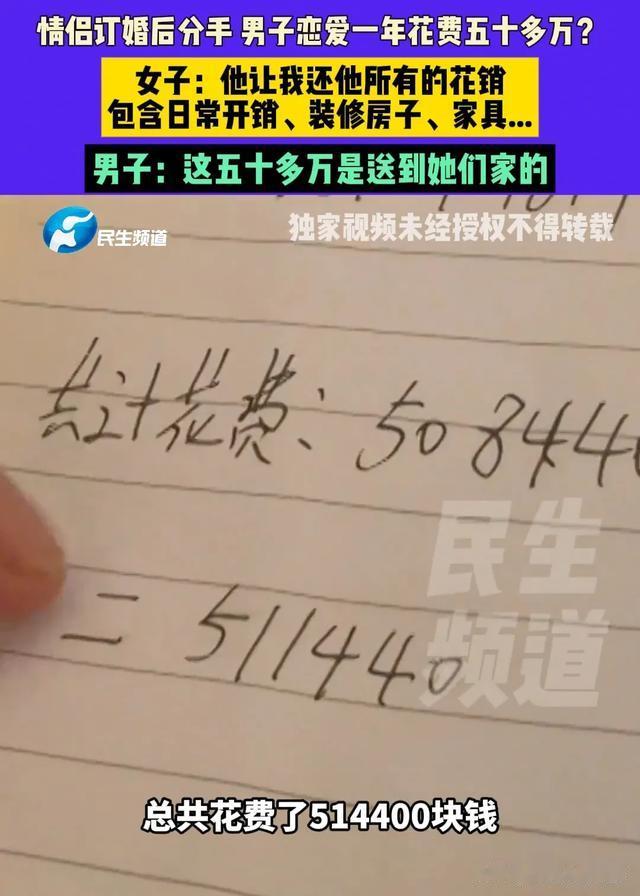 情侣订婚后分手 男子恋爱一年花费五十多万？
女子：他让我还他所有的花销
包含日常开销、装修房子、家具...
男子：这五十多万是送到她们家的
民生频道
独家视频未经授权不得转载
共计花费：508440
民生
频道
= 511440
总共花费了514400块钱